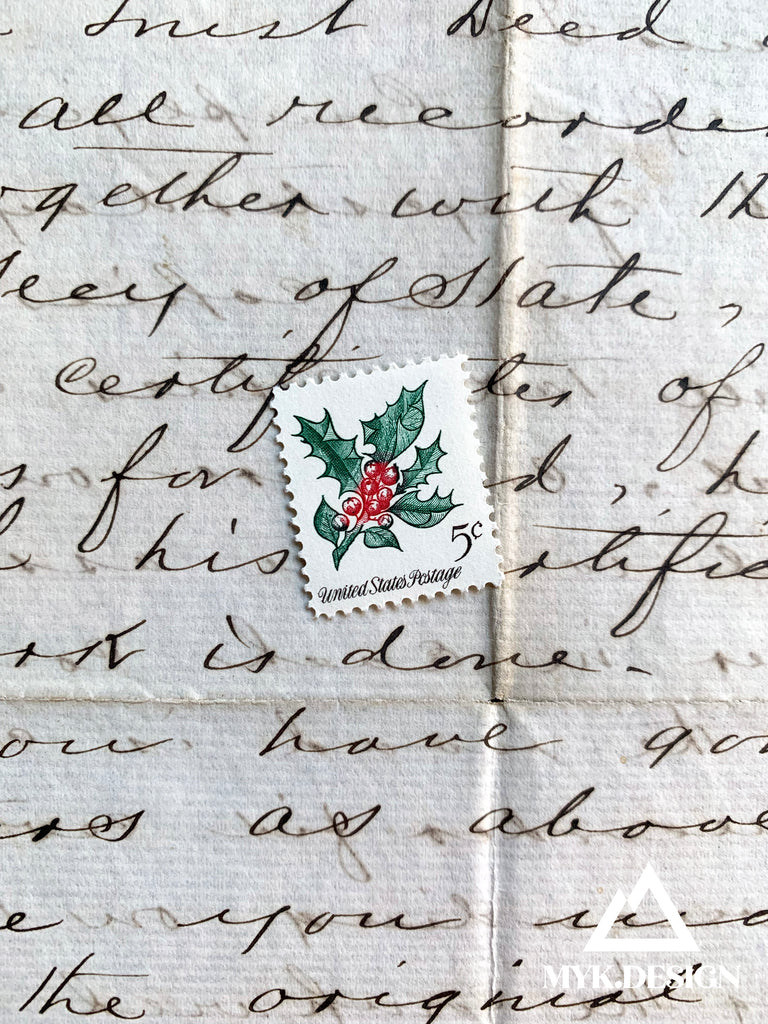 Trust Deed
all recorde
ogether with th
Secy. of State,
certif tes of
s for d, h
his rtific
ork is done.
ou have go
ers as above
e you
The original
5¢
United States Postage
MYK.DESIGN